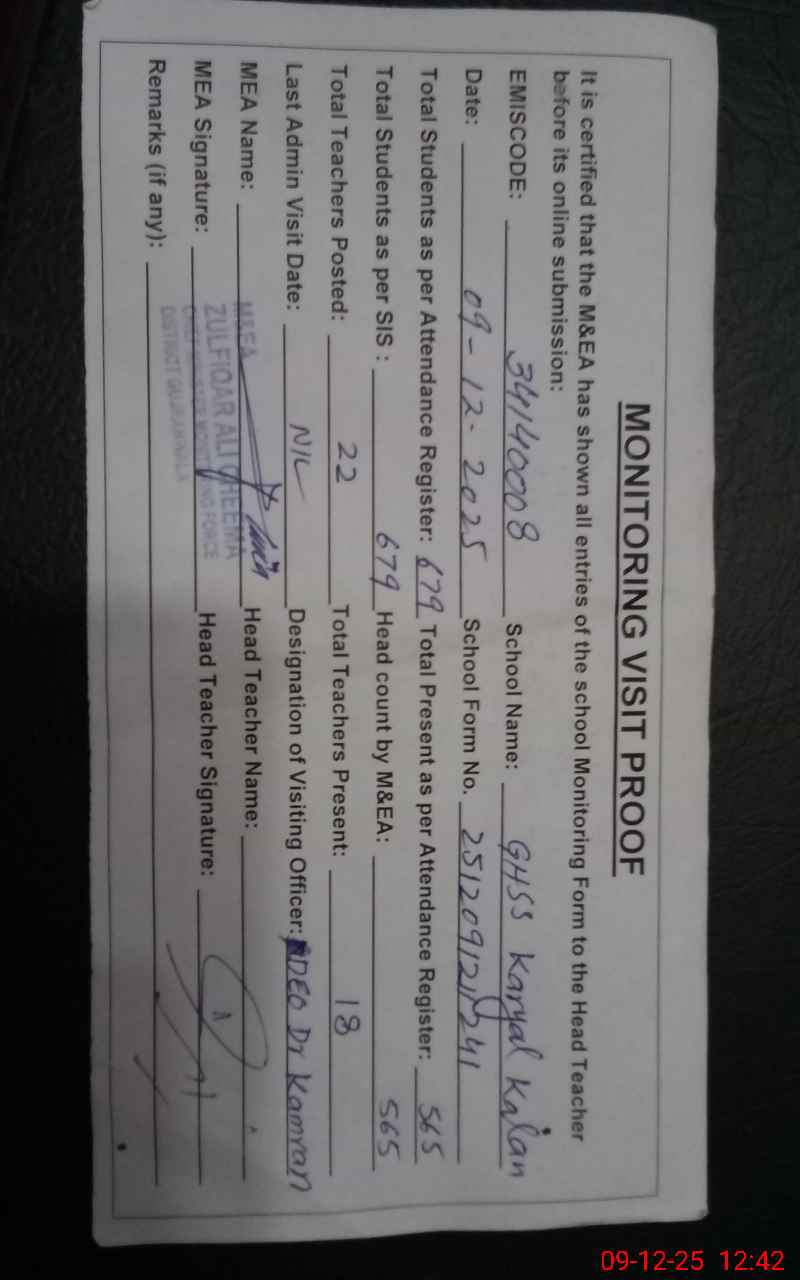 MONITORING VISIT PROOF
It is certified that the M&EA has shown all entries of the school Monitoring Form to the Head Teacher
before its online submission:
EMISCODE: 34140008 School Name: GHSS Karyal Kalan
Date: 09-12-2025 School Form No. 2512091211241
Total Students as per Attendance Register: 679 Total Present as per Attendance Register: 565
Total Students as per SIS : 679 Head count by M&EA: 565
Total Teachers Posted: 22 Total Teachers Present: 18
Last Admin Visit Date: NIL Designation of Visiting Officer: DEO Dr Kamran
MEA Name: Head Teacher Name:
MEA Signature: Head Teacher Signature:
Remarks (if any):
M&EA
ZULFIQAR ALI CHEEMA
CHIEF MINISTER MONITORING FORCE
DISTRICT GUJRANWALA
09-12-25 12:42